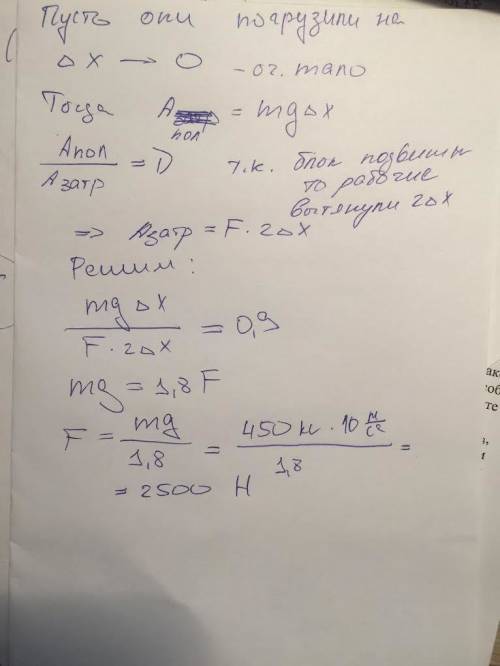 Пусть они погрузили на
Δx → 0 - оч. мало
Тогда Aпол = mgΔx
Aпол / Aзатр = D т.к. блок подвижн
то рабочие
вытянули 2Δx
=> Aзатр = F · 2Δx
Решим:
mgΔx / F · 2Δx = 0,9
mg = 1,8 F
F = mg / 1,8 = 450 кг · 10 м/с² / 1,8 =
= 2500 Н